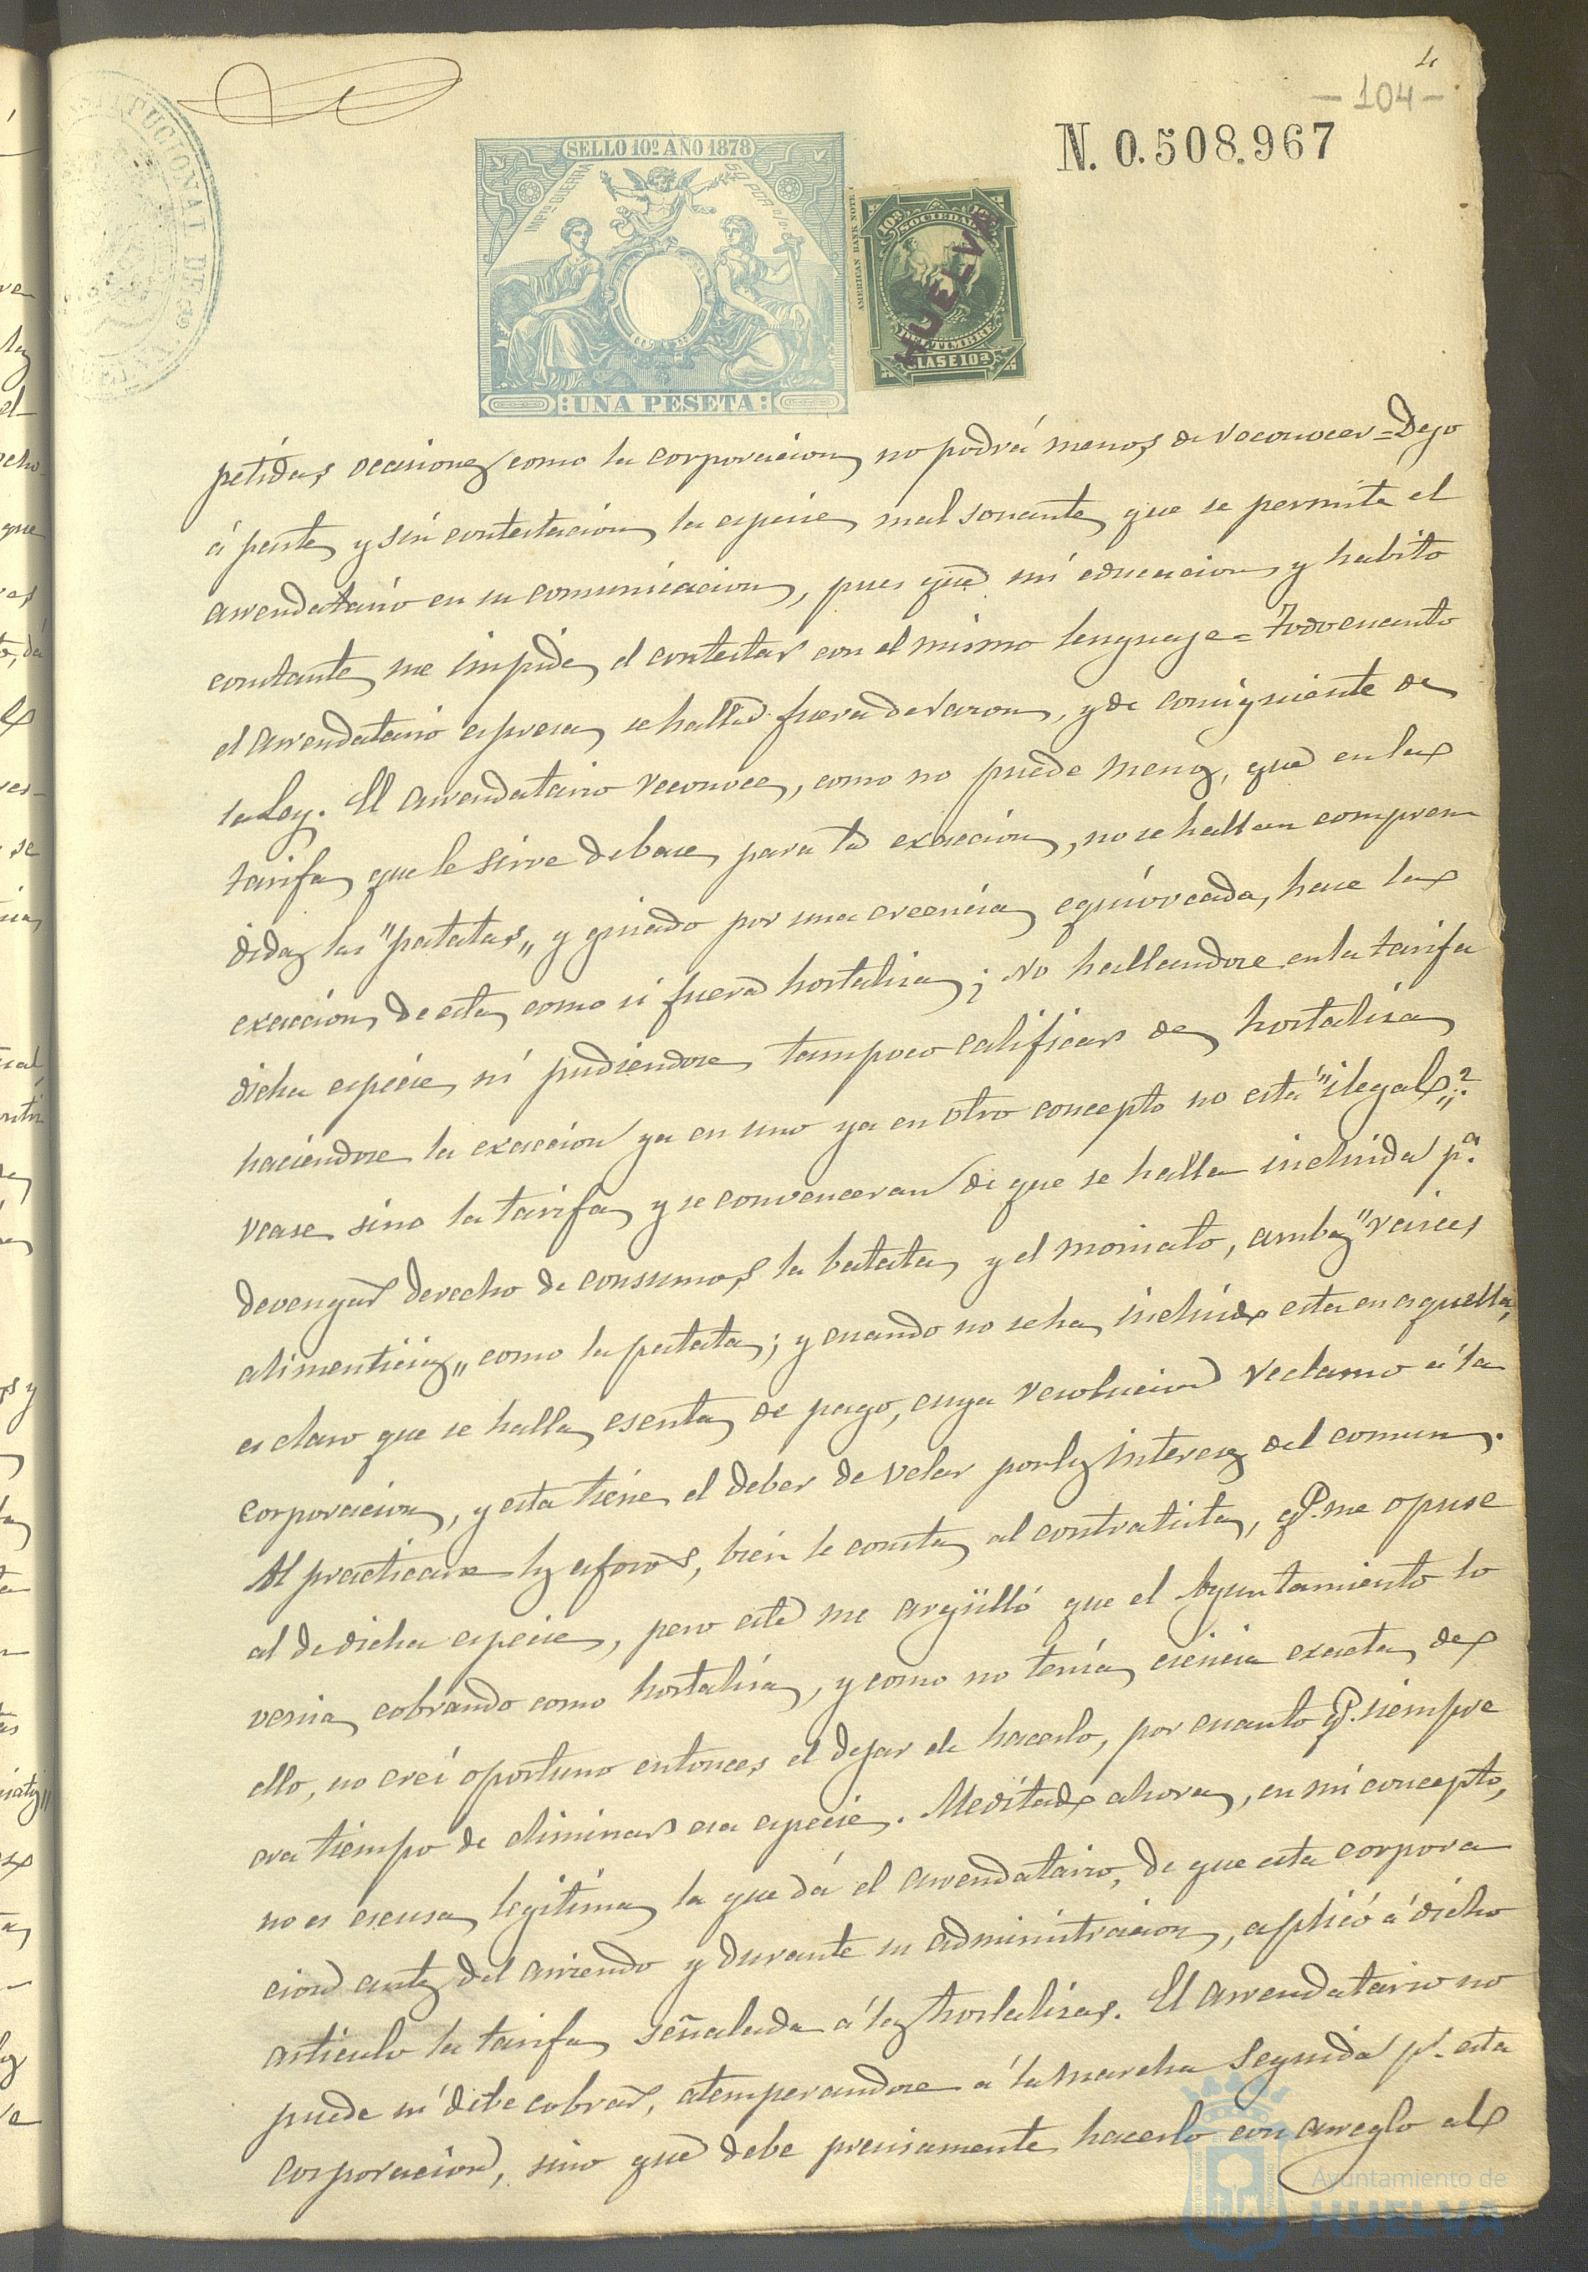 4
-104-
N. 0.508.967
SELLO 10º AÑO 1878
UNA PESETA
AMERICAN BANK NOTE
SOCIEDAD
HUELVA
DEL TIMBRE
CLASE 10ª
petidas ocasiones como la corporacion no podrá menos de reconocer = Dejo
á parte y sin contestacion la especie mal sonante que se permite el
arrendatario en su comunicacion, pues que mi educacion y habito
constante me impide el contestar con el mismo lenguaje = Todo cuanto
el arrendatario espresa se halla fuera de razon, y de consiguiente de
la Ley. El arrendatario reconoce, como no puede menos, que en la
tarifa que le sirve de base para la exaccion, no se hallan compren
didas las "patatas" y guiado por una creencia equivocada, hace la
exaccion de esta como si fuera hortaliza; No hallandose en la tarifa
dicha especie ni pudiendose tampoco calificar de hortaliza
haciendose la exaccion ya en uno ya en otro concepto no esta "ilegal"?
vease sino la tarifa y se convenceran de que se halla incluida p.ª
devengar derecho de consumos la batata y el moniato, ambas "raices
alimenticias" como la patata; y cuando no se ha incluido esta en aquella,
es claro que se halla esenta de pago, cuya resolucion reclamo á la
corporacion, y esta tiene el deber de velar por los intereses del comun.
Al practicarse los aforos, bien le consta al contratista, q.e me opuse
al de dicha especie, pero este me argülló que el Ayuntamiento lo
venia cobrando como hortaliza, y como no tenía ciencia exacta de
ello, no creí oportuno entonces el dejar de hacerlo, por cuanto q.e siempre
era tiempo de eliminar esa especie. Meditado ahora, en mi concepto,
no es escusa legitima la que dá el arrendatario, de que esta corpora
cion antes del arriendo y durante su administracion, aplicó á dicho
articulo la tarifa señalada á las hortalizas. El arrendatario no
puede ni debe cobrar, atemperandose á la marcha seguida p.r esta
corporacion, sino que debe precisamente hacerlo con arreglo al
Ayuntamiento de
HUELVA